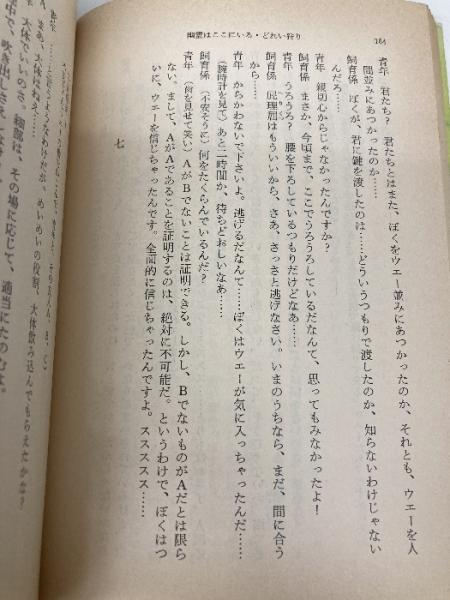 184
幽霊はここにいる・どれい狩り
青年 君たち? 君たちとはまた、ぼくをウエー並みにあつかったのか、それとも、ウエーを人
間並みにあつかったのか……
飼育係 ぼくが、君に鍵を渡したのは……どういうつもりで渡したのか、知らないわけじゃない
んだろ……
青年 親切心からじゃなかったんですか?
飼育係 まさか、今頃まで、ここでうろうろしているだなんて、思ってもみなかったよ!
青年 うろうろ? 腰を下ろしているつもりだけどなあ……
飼育係 屁理屈はもういいから、さあ、さっさと逃げなさい。いまのうちなら、まだ、間に合う
から……
青年 からかわないで下さいよ。逃げるだなんて……ぼくはウエーが気に入っちゃったんだ……
(腕時計を見て)あと二時間か、待ちどおしいなあ……
飼育係 (不安そうに)何をたくらんでいるんだ?
青年 (前を見せて笑い)AがBでないことは証明できる。しかし、BでないものがAだとは限ら
ない。まして、AがAであることを証明するのは、絶対に不可能だ。というわけで、ぼくはつ
いに、ウエーを信じちゃったんです。全面的に信じちゃったんですよ。スススススス……
七
めいめいの役割、大体飲み込んでもらえたかな?
A まあ、大体はねえ……
大体でいいのさ。細部は、その場に応じて、適当にたのむよ。
中で、吹き出しさえし